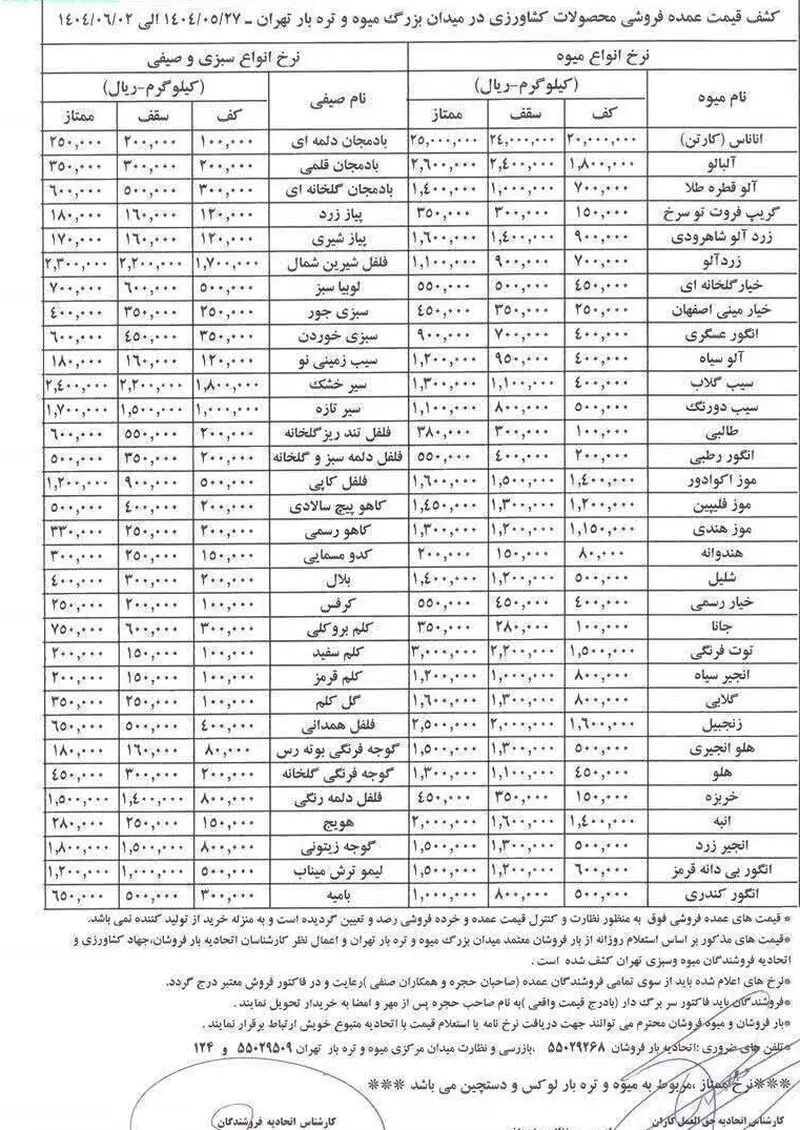 کشف قیمت عمده فروشی محصولات کشاورزی در میدان بزرگ میوه و تره بار تهران ـ ۱۴۰۴/۰۵/۲۷ الی ۱۴۰۴/۰۶/۰۲
نرخ انواع میوه نرخ انواع سبزی و صیفی
نام میوه (کیلوگرم-ریال) نام صیفی (کیلوگرم-ریال)
کف سقف ممتاز کف سقف ممتاز
اناناس (کارتن) ۲۰,۰۰۰,۰۰۰ ۲۴,۰۰۰,۰۰۰ ۲۵,۰۰۰,۰۰۰ بادمجان دلمه ای ۱۰۰,۰۰۰ ۲۰۰,۰۰۰ ۲۵۰,۰۰۰
آلبالو ۱,۸۰۰,۰۰۰ ۲,۴۰۰,۰۰۰ ۲,۶۰۰,۰۰۰ بادمجان قلمی ۲۰۰,۰۰۰ ۳۰۰,۰۰۰ ۳۵۰,۰۰۰
آلو قطره طلا ۷۰۰,۰۰۰ ۱,۰۰۰,۰۰۰ ۱,۴۰۰,۰۰۰ بادمجان گلخانه ای ۳۰۰,۰۰۰ ۵۰۰,۰۰۰ ۶۰۰,۰۰۰
گریپ فروت تو سرخ ۱۵۰,۰۰۰ ۳۰۰,۰۰۰ ۳۵۰,۰۰۰ پیاز زرد ۱۲۰,۰۰۰ ۱۶۰,۰۰۰ ۱۸۰,۰۰۰
زرد آلو شاهرودی ۹۰۰,۰۰۰ ۱,۴۰۰,۰۰۰ ۱,۶۰۰,۰۰۰ پیاز شیری ۱۲۰,۰۰۰ ۱۶۰,۰۰۰ ۱۷۰,۰۰۰
زردآلو ۷۰۰,۰۰۰ ۹۰۰,۰۰۰ ۱,۱۰۰,۰۰۰ فلفل شیرین شمال ۱,۷۰۰,۰۰۰ ۲,۲۰۰,۰۰۰ ۲,۳۰۰,۰۰۰
خیارگلخانه ای ۴۵۰,۰۰۰ ۵۰۰,۰۰۰ ۵۵۰,۰۰۰ لوبیا سبز ۵۰۰,۰۰۰ ۶۰۰,۰۰۰ ۷۰۰,۰۰۰
خیار مینی اصفهان ۲۵۰,۰۰۰ ۳۵۰,۰۰۰ ۴۵۰,۰۰۰ سبزی جور ۲۵۰,۰۰۰ ۳۵۰,۰۰۰ ۴۰۰,۰۰۰
انگور عسگری ۴۰۰,۰۰۰ ۷۰۰,۰۰۰ ۹۰۰,۰۰۰ سبزی خوردن ۳۵۰,۰۰۰ ۴۵۰,۰۰۰ ۶۰۰,۰۰۰
آلو سیاه ۴۰۰,۰۰۰ ۹۵۰,۰۰۰ ۱,۲۰۰,۰۰۰ سیب زمینی نو ۱۲۰,۰۰۰ ۱۶۰,۰۰۰ ۱۸۰,۰۰۰
سیب گلاب ۴۰۰,۰۰۰ ۱,۱۰۰,۰۰۰ ۱,۳۰۰,۰۰۰ سیر خشک ۱,۸۰۰,۰۰۰ ۲,۲۰۰,۰۰۰ ۲,۴۰۰,۰۰۰
سیب دورنگ ۵۰۰,۰۰۰ ۸۰۰,۰۰۰ ۱,۱۰۰,۰۰۰ سیر تازه ۱,۰۰۰,۰۰۰ ۱,۵۰۰,۰۰۰ ۱,۷۰۰,۰۰۰
طالبی ۱۰۰,۰۰۰ ۳۰۰,۰۰۰ ۳۸۰,۰۰۰ فلفل تند ریزگلخانه ۲۰۰,۰۰۰ ۵۵۰,۰۰۰ ۶۰۰,۰۰۰
انگور رطبی ۲۰۰,۰۰۰ ۴۰۰,۰۰۰ ۵۵۰,۰۰۰ فلفل دلمه سبز و گلخانه ۲۰۰,۰۰۰ ۳۵۰,۰۰۰ ۵۰۰,۰۰۰
موز اکوادور ۱,۴۰۰,۰۰۰ ۱,۵۰۰,۰۰۰ ۱,۶۰۰,۰۰۰ فلفل کاپی ۵۰۰,۰۰۰ ۹۰۰,۰۰۰ ۱,۲۰۰,۰۰۰
موز فلیپین ۱,۲۰۰,۰۰۰ ۱,۳۰۰,۰۰۰ ۱,۴۵۰,۰۰۰ کاهو پیچ سالادی ۲۰۰,۰۰۰ ۴۰۰,۰۰۰ ۵۰۰,۰۰۰
موز هندی ۱,۱۵۰,۰۰۰ ۱,۲۰۰,۰۰۰ ۱,۳۰۰,۰۰۰ کاهو رسمی ۲۰۰,۰۰۰ ۲۵۰,۰۰۰ ۳۳۰,۰۰۰
هندوانه ۸۰,۰۰۰ ۱۵۰,۰۰۰ ۲۰۰,۰۰۰ کدو مسمایی ۱۵۰,۰۰۰ ۲۵۰,۰۰۰ ۳۰۰,۰۰۰
شلیل ۵۰۰,۰۰۰ ۱,۲۰۰,۰۰۰ ۱,۴۰۰,۰۰۰ بلال ۲۰۰,۰۰۰ ۳۰۰,۰۰۰ ۴۰۰,۰۰۰
خیار رسمی ۴۰۰,۰۰۰ ۴۵۰,۰۰۰ ۵۵۰,۰۰۰ کرفس ۱۰۰,۰۰۰ ۲۰۰,۰۰۰ ۲۵۰,۰۰۰
جانا ۱۰۰,۰۰۰ ۲۸۰,۰۰۰ ۳۵۰,۰۰۰ کلم بروکلی ۳۰۰,۰۰۰ ۶۰۰,۰۰۰ ۷۵۰,۰۰۰
توت فرنگی ۱,۵۰۰,۰۰۰ ۲,۲۰۰,۰۰۰ ۳,۰۰۰,۰۰۰ کلم سفید ۱۰۰,۰۰۰ ۱۵۰,۰۰۰ ۲۰۰,۰۰۰
انجیر سیاه ۸۰۰,۰۰۰ ۱,۰۰۰,۰۰۰ ۱,۲۰۰,۰۰۰ کلم قرمز ۱۰۰,۰۰۰ ۱۵۰,۰۰۰ ۲۰۰,۰۰۰
گلابی ۸۰۰,۰۰۰ ۱,۳۰۰,۰۰۰ ۱,۶۰۰,۰۰۰ گل کلم ۱۰۰,۰۰۰ ۲۵۰,۰۰۰ ۳۵۰,۰۰۰
زنجبیل ۱,۶۰۰,۰۰۰ ۲,۰۰۰,۰۰۰ ۲,۵۰۰,۰۰۰ فلفل همدانی ۴۰۰,۰۰۰ ۵۰۰,۰۰۰ ۶۵۰,۰۰۰
هلو انجیری ۵۰۰,۰۰۰ ۱,۳۰۰,۰۰۰ ۱,۵۰۰,۰۰۰ گوجه فرنگی بوته رس ۸۰,۰۰۰ ۱۶۰,۰۰۰ ۱۸۰,۰۰۰
هلو ۴۵۰,۰۰۰ ۱,۱۰۰,۰۰۰ ۱,۳۰۰,۰۰۰ گوجه فرنگی گلخانه ۲۰۰,۰۰۰ ۳۰۰,۰۰۰ ۴۵۰,۰۰۰
خربزه ۱۵۰,۰۰۰ ۳۵۰,۰۰۰ ۴۵۰,۰۰۰ فلفل دلمه رنگی ۸۰۰,۰۰۰ ۱,۴۰۰,۰۰۰ ۱,۵۰۰,۰۰۰
انبه ۱,۴۰۰,۰۰۰ ۱,۶۰۰,۰۰۰ ۲,۰۰۰,۰۰۰ هویج ۱۵۰,۰۰۰ ۲۵۰,۰۰۰ ۲۸۰,۰۰۰
انجیر زرد ۵۰۰,۰۰۰ ۱,۳۰۰,۰۰۰ ۱,۵۰۰,۰۰۰ گوجه زیتونی ۸۰۰,۰۰۰ ۱,۵۰۰,۰۰۰ ۱,۸۰۰,۰۰۰
انگور بی دانه قرمز ۶۰۰,۰۰۰ ۱,۲۰۰,۰۰۰ ۱,۵۰۰,۰۰۰ لیمو ترش میناب ۵۰۰,۰۰۰ ۱,۰۰۰,۰۰۰ ۱,۲۰۰,۰۰۰
انگور کندری ۵۰۰,۰۰۰ ۸۰۰,۰۰۰ ۱,۰۰۰,۰۰۰ بامیه ۳۰۰,۰۰۰ ۵۰۰,۰۰۰ ۶۵۰,۰۰۰
* قیمت های عمده فروشی فوق به منظور نظارت و کنترل قیمت عمده و خرده فروشی رصد و تعیین گردیده است و به منزله خرید از تولید کننده نمی باشد.
*قیمت های مذکور بر اساس استعلام روزانه از بار فروشان معتمد میدان بزرگ میوه و تره بار تهران و اعمال نظر کارشناسان اتحادیه بار فروشان،جهاد کشاورزی و
اتحادیه فروشندگان میوه وسبزی تهران کشف شده است .
*نرخ های اعلام شده باید از سوی تمامی فروشندگان عمده (صاحبان حجره و همکاران صنفی )رعایت و در فاکتور فروش معتبر درج گردد.
*فروشندگان باید فاکتور سر برگ دار (بادرج قیمت واقعی )به نام صاحب حجره پس از مهر و امضا به خریدار تحویل نمایند .
*بار فروشان و میوه فروشان محترم می توانند جهت دریافت نرخ نامه یا استعلام قیمت با اتحادیه متبوع خویش ارتباط برقرار نمایند .
*تلفن های ضروری :اتحادیه بار فروشان ۵۵۰۲۹۲۶۸ ،بازرسی و نظارت میدان مرکزی میوه و تره بار تهران ۵۵۰۲۹۵۰۹ و ۱۲۴
***نرخ ممتاز ،مربوط به میوه و تره بار لوکس و دستچین می باشد ***
کارشناس اتحادیه حق العمل کاران کارشناس اتحادیه فروشندگان